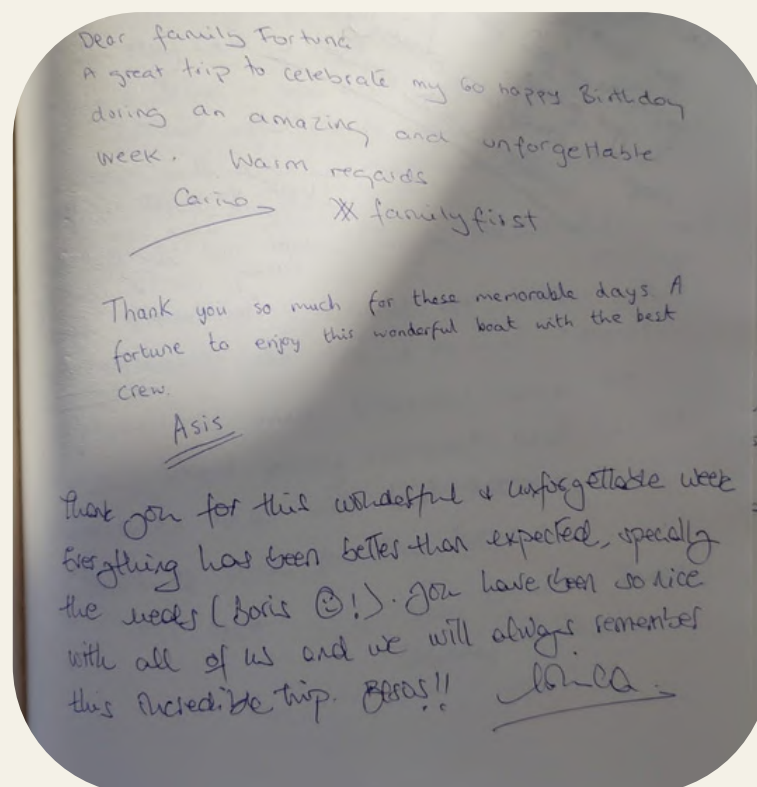 Dear family Fortuna
A great trip to celebrate my 60 happy Birthday
during an amazing and unforgettable
week. Warm regards
familyfirst
Thank you so much for these memorable days. A
fortune to enjoy this wonderful boat with the best
crew.
Asis
Thank you for this wonderful & unforgettable week
Everything has been better than expected, specially
the meals (Boris ☺!). You have been so nice
with all of us and we will always remember
this incredible trip. Besos!!